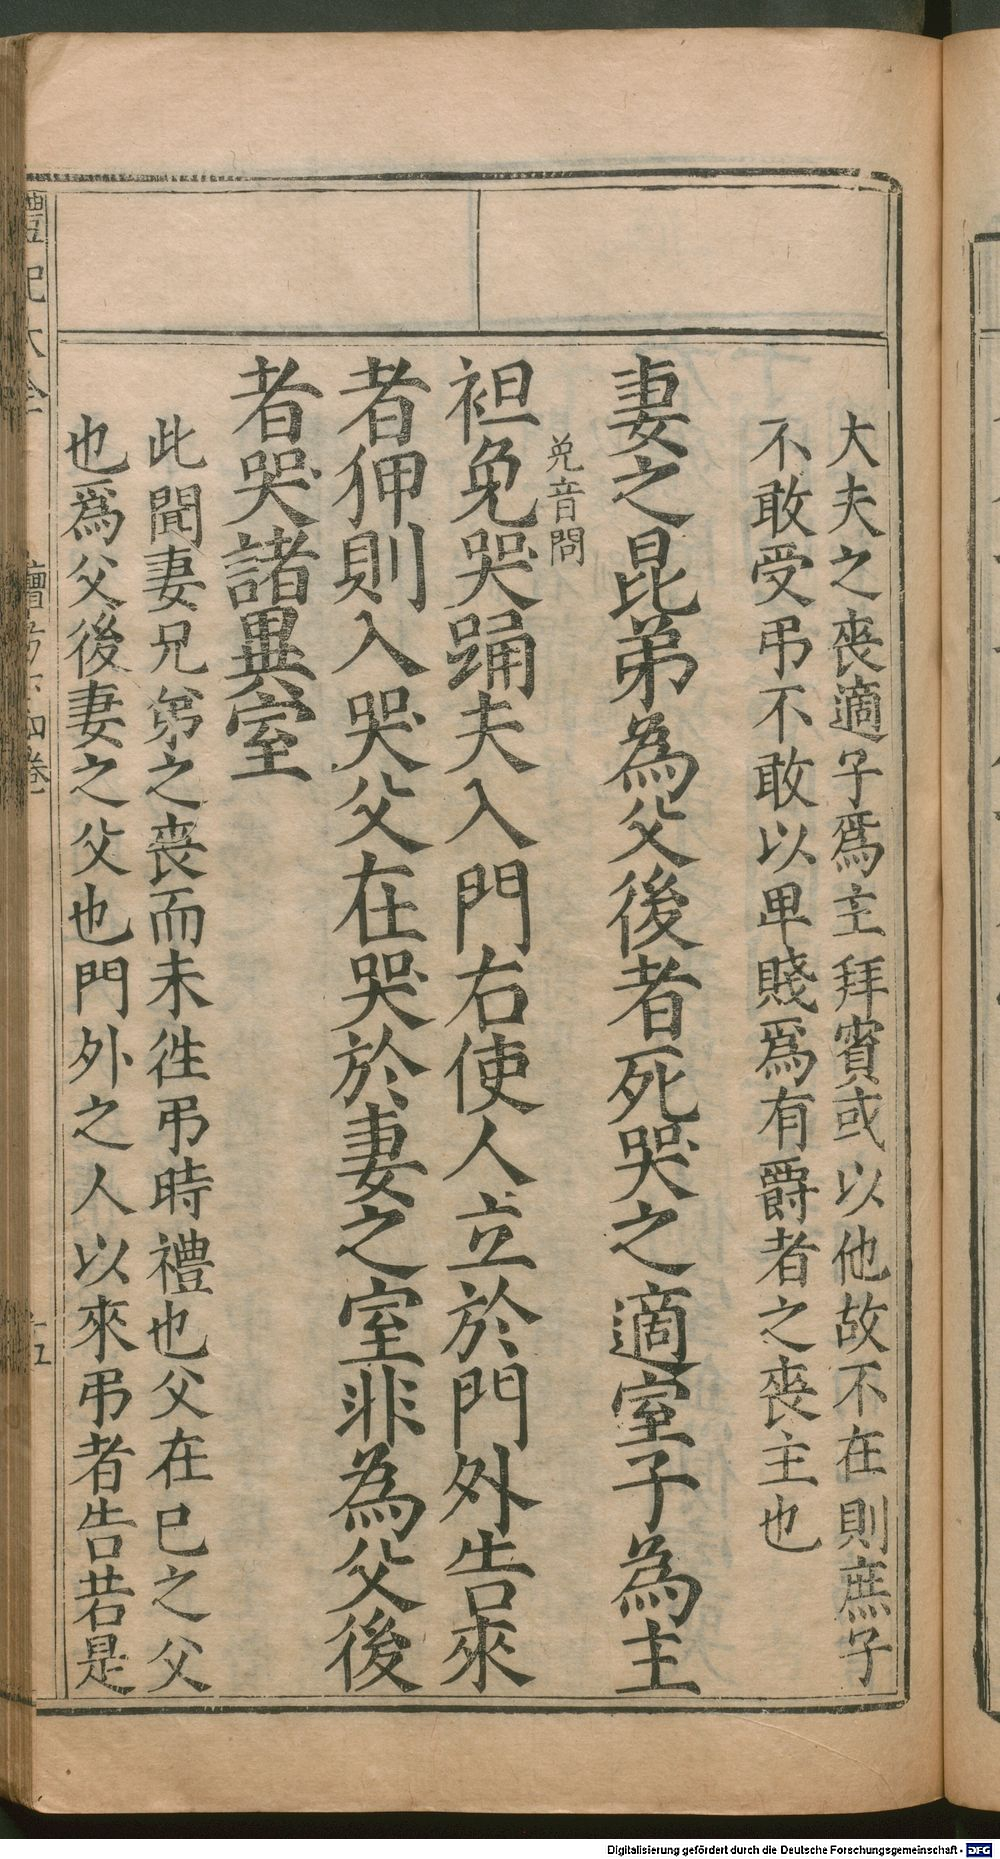 大夫之喪適子爲主拜賓或以他故不在則庶子
不敢受弔不敢以卑賤爲有爵者之喪主也
妻之昆弟為父後者死哭之適室子為主
免音問
袒免哭踊夫入門右使人立於門外告來
者狎則入哭父在哭於妻之室非為父後
者哭諸異室
此聞妻兄弟之喪而未徃弔時禮也父在已之父
也爲父後妻之父也門外之人以來弔者告若是
Digitalisierung gefördert durch die Deutsche Forschungsgemeinschaft - DFG